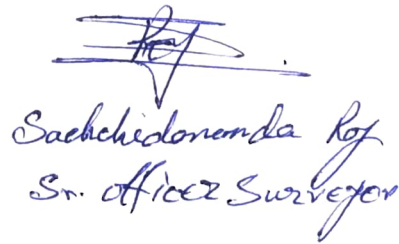 Roy
Sachchidananda Roy
Sr. Officer Surveyor